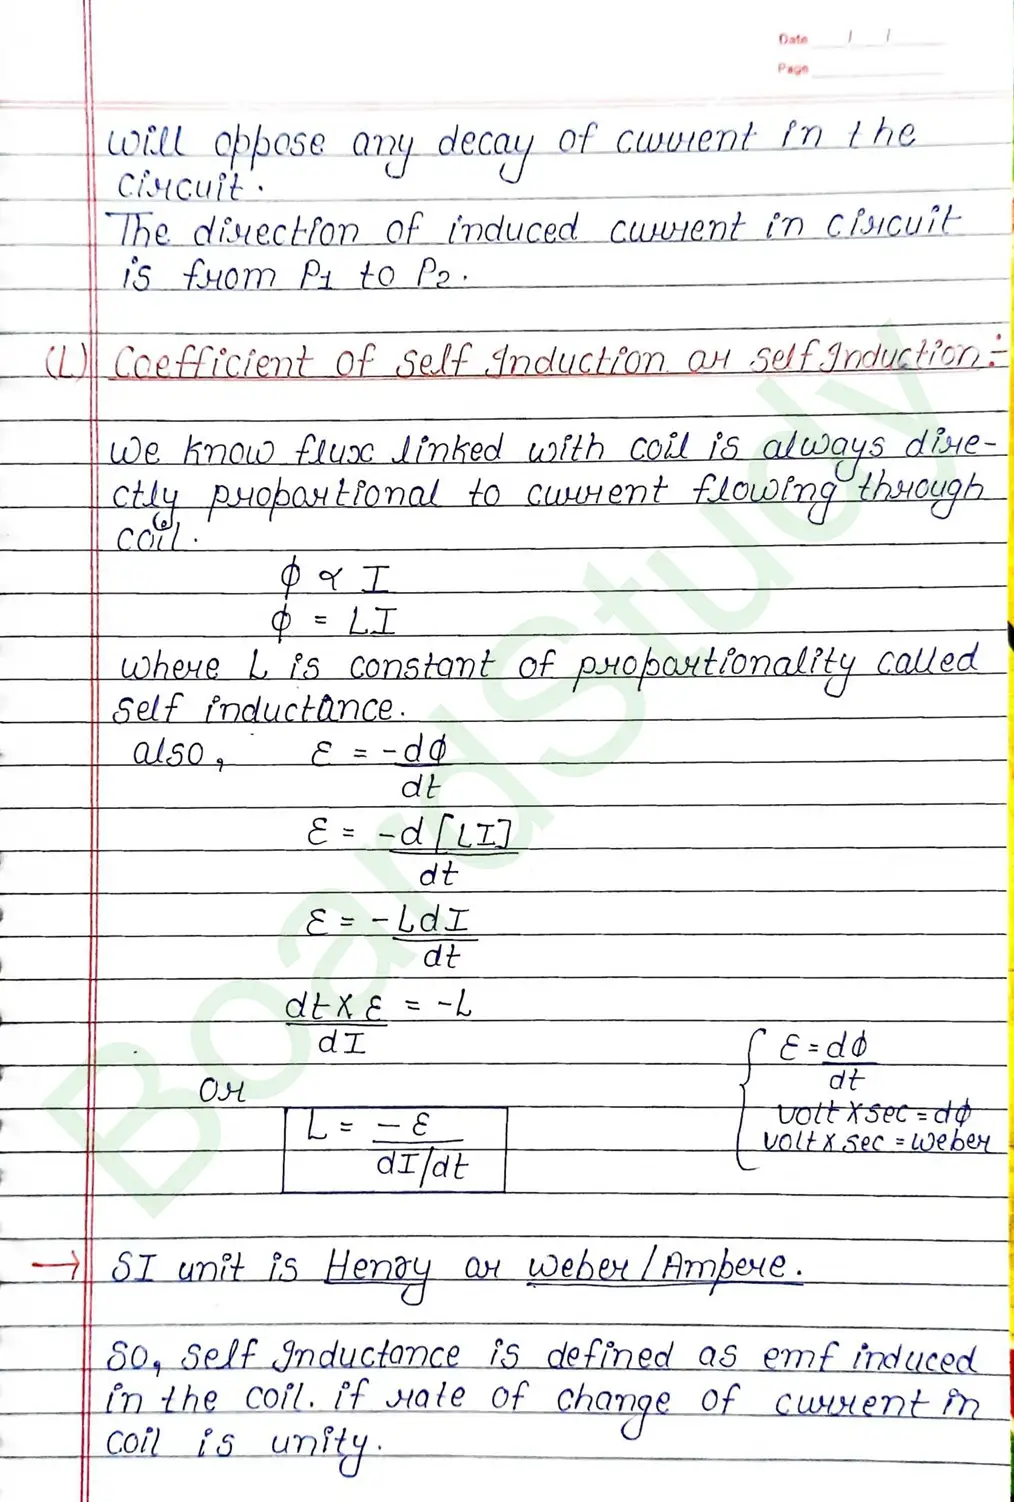 Date / /
Page
will oppose any decay of current in the
circuit.
The direction of induced current in circuit
is from P1 to P2.
(L) Coefficient of Self Induction or Self Induction:-
We know flux linked with coil is always dire-
ctly proportional to current flowing through
coil.
ϕ ∝ I
ϕ = LI
where L is constant of proportionality called
self inductance.
also, ε = -dϕ
dt
ε = -d[LI]
dt
ε = -LdI
dt
dt × ε = -L
dI
or
L = -ε
dI/dt
{ ε = dϕ
dt
volt × sec = dϕ
volt × sec = weber
→ SI unit is Henry or Weber/Ampere.
So, Self Inductance is defined as emf induced
in the coil. if rate of change of current in
coil is unity.
BoardStudy